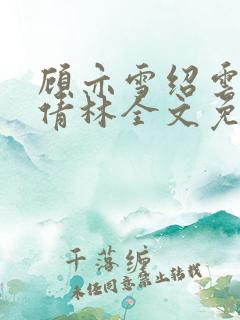 顾亦雪绍雲
倩林全文免
千落缠
未经同意禁止转载